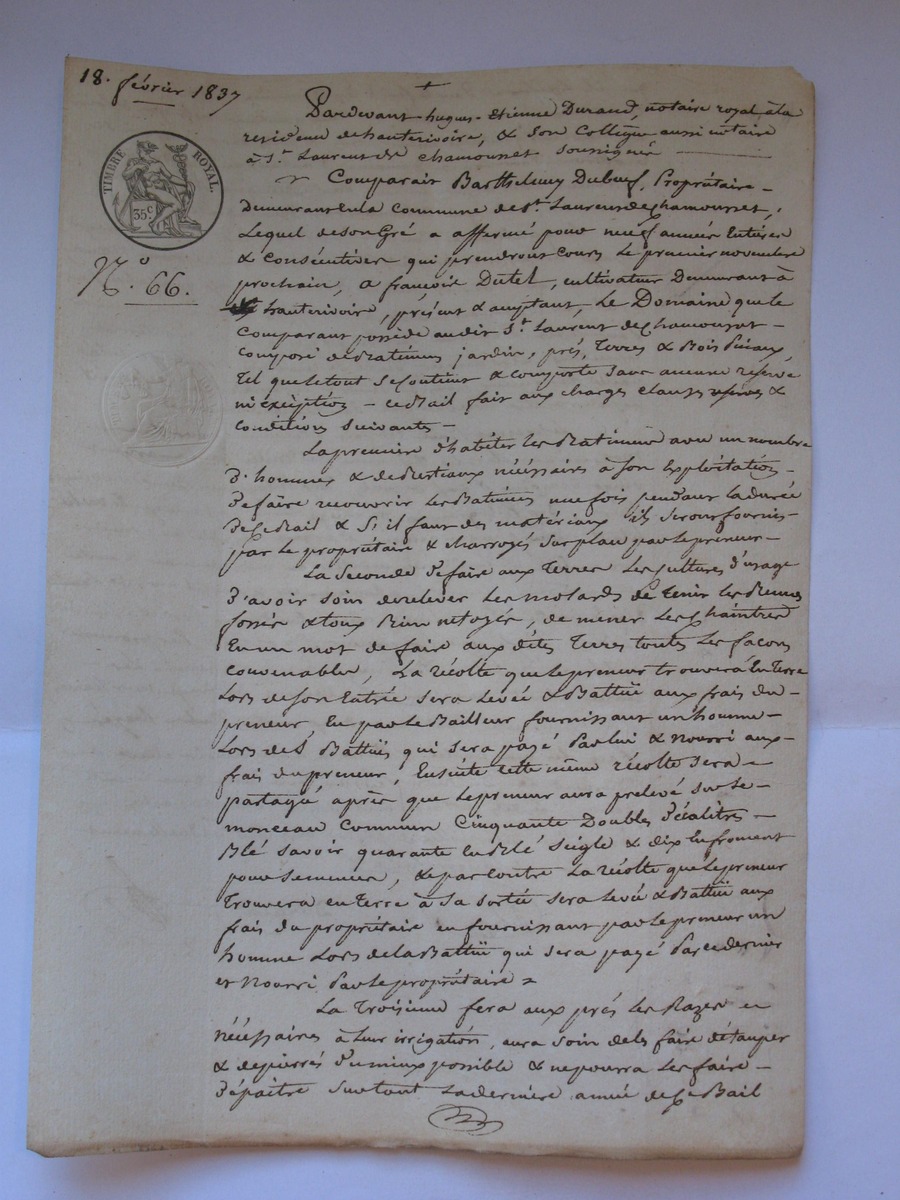 18. février 1837
TIMBRE ROYAL.
35 c
N.o 66.
Pardevant hugues-étienne Durand, notaire royal à la
residence de hauterivoire, & son Collègue aussi notaire
à St. Laurent de Chamousset soussignés
Comparait Barthelemy Dubeuf, Propriétaire
Demeurant en la commune de St. Laurens de Chamousset,
Lequel de son Gré a affermé pour neuf années Entières
& Conséutives qui prendront cours Le premier novembre
prochain, a françois Dutel, cultivateur Demeurant à
hauterivoire, présent & acceptant, Le Domaine que le
Comparant possède audit St. Laurent de Chamousset
Composé de Batimens jardin, prés, Terres & Bois
Tel que le tout se Contient & comporte sans aucune réserve
ni éxception - ce Bail fait aux charges clauses & 
Conditions suivantes -
La premiere d'habiter les Batimens avec un nombre
d'hommes & de Bestiaux nécéssaires à son Exploitation
De faire recouvrir Les Batimens une fois pendant la durée
De Ce Bail & S'il faut des matériaux ils seront fournis
par Le propriétaire & charroyés sur place par le preneur -
La Seconde De faire aux Terres Les cultures D'usage
D'avoir soin de relever Les molards de tenir les
fossés & toux Bien netoyés, de mener Les Chaintres
En un mot de faire aux dites Terres toutes Les façons
convenables, La récolte que Le preneur trouvera En Terre
Lors de son Entrée sera Levée & Battüe aux frais du
preneur En par Le Bailleur fournissant un homme
Lors de S. Battües qui sera payé Par lui & Nourri aux
frais du preneur, Ensuite cette même récolte sera
partagée après que Le preneur aura prelevé sur Le
monceau commun Cinquante Doubles Décalitres
Blé savoir quarante En Blé seigle & dix En froment
pour semences, & par contre La récolte que Le preneur
Trouvera en Terre à Sa sortie sera Levée & Battüe aux
frais du propriétaire en fournissant par Le preneur un
homme Lors de La Battüe qui sera payé Par ce dernier
et Nourri Par Le propriétaire
La Troisieme fera aux prés Les Razes
nécéssaires à Leur irrigation, aura soin de les faire détauper
& depierrés Du mieux possible & ne pourra Les faire
Dépaitre surtout La dernière année de Ce Bail